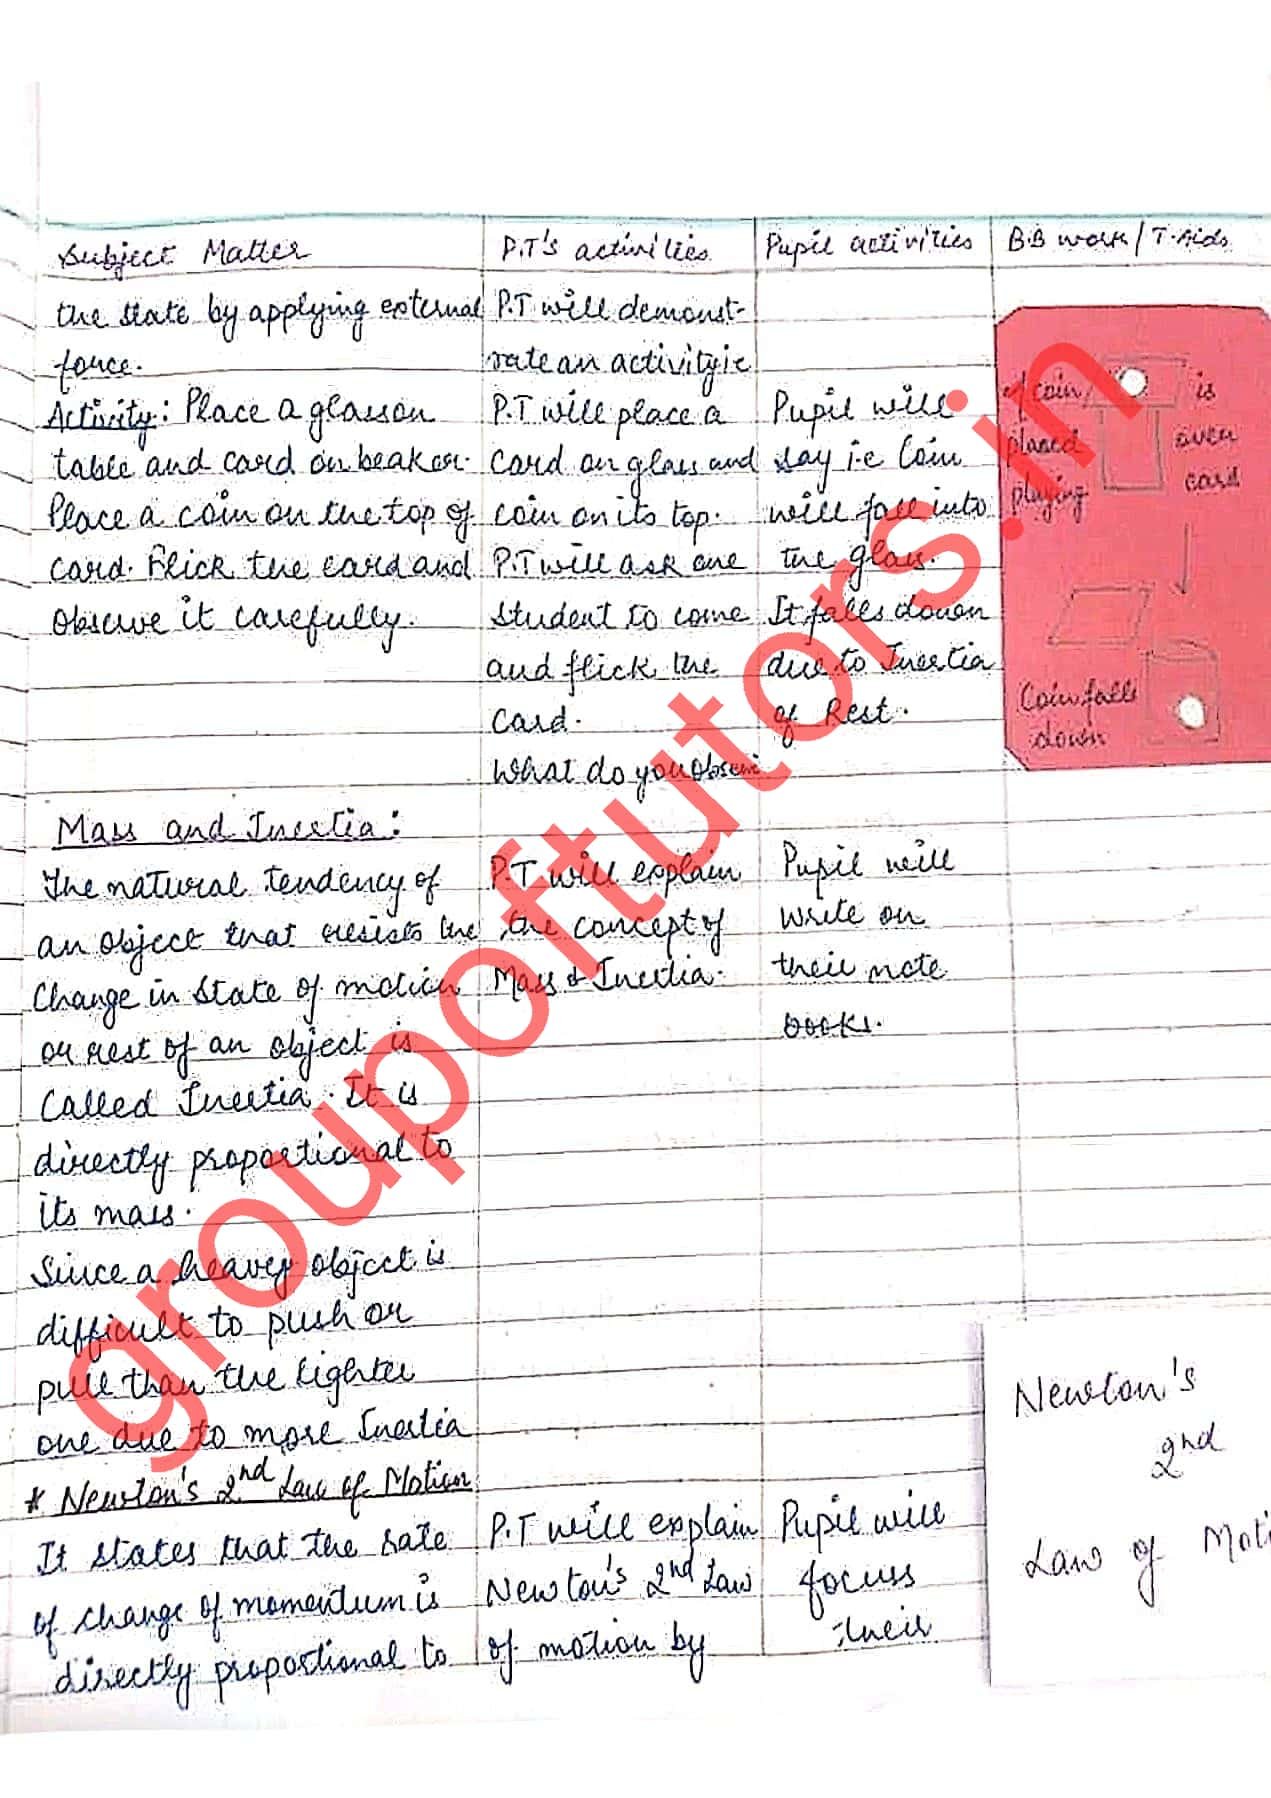 Subject Matter
the state by applying external
force.
Activity: Place a glass on
table and card on beaker.
Place a coin on the top of
card. Flick the card and
observe it carefully.
Mass and Inertia:
The natural tendency of
an object that resists the
Change in State of motion
or rest of an object is
Called Inertia. It is
directly proportional to
its mass.
Since a heavey object is
difficult to push or
pull than the lighter
one due to more Inertia
* Newton's 2nd Law of Motion
It states that the rate
of change of momentum is
directly proportional to
P.T's activities
P.T will demonst-
rate an activity ie
P.T will place a
Card on glass and
coin on its top.
P.T will ask one
student to come
and flick the
Card.
What do you observe
P.T will explain
the concept of
Mass & Inertia.
P.T will explain
Newton's 2nd Law
of motion by
Pupil activities
Pupil will
say i.e Coin
will fall into
the glass.
It falls down
due to Inertia
of Rest.
Pupil will
write on
their note
books.
Pupil will
focuss
their
B.B work / T.Aids
coin is
placed over
playing card
Coin falls
down
Newton's
2nd
Law of Moti
groupoftutors.in